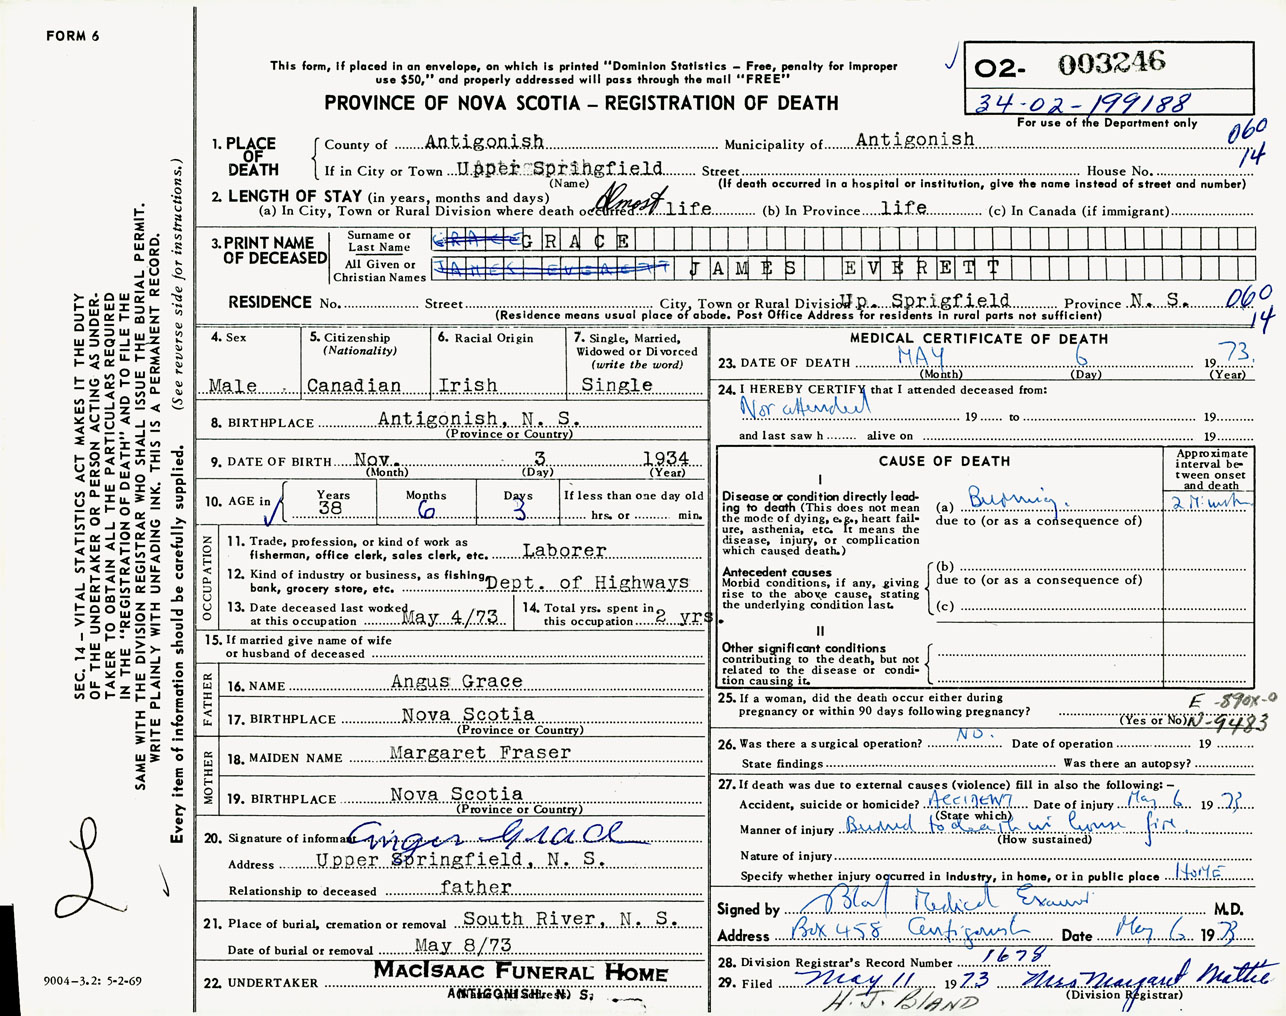 FORM 6
This form, if placed in an envelope, on which is printed "Dominion Statistics – Free, penalty for improper
use $50," and properly addressed will pass through the mail "FREE"
PROVINCE OF NOVA SCOTIA – REGISTRATION OF DEATH
02- 003246
34-02-199188
For use of the Department only
060
14
1. PLACE OF DEATH
County of Antigonish Municipality of Antigonish
If in City or Town Upper Springfield Street House No.
(Name) (If death occurred in a hospital or institution, give the name instead of street and number)
2. LENGTH OF STAY (in years, months and days)
(a) In City, Town or Rural Division where death occurred Almost life (b) In Province life (c) In Canada (if immigrant)
3. PRINT NAME OF DECEASED
Surname or Last Name GRACE GRACE
All Given or Christian Names JAMES EVERETT JAMES EVERETT
RESIDENCE No. Street City, Town or Rural Division Up. Sprigfield Province N. S. 060
(Residence means usual place of abode. Post Office Address for residents in rural parts not sufficient) 14
4. Sex
Male
5. Citizenship
(Nationality)
Canadian
6. Racial Origin
Irish
7. Single, Married,
Widowed or Divorced
(write the word)
Single
8. BIRTHPLACE Antigonish, N. S.
(Province or Country)
9. DATE OF BIRTH Nov. 3 1934
(Month) (Day) (Year)
10. AGE in
Years Months Days If less than one day old
38 6 3 hrs. or min.
OCCUPATION
11. Trade, profession, or kind of work as
fisherman, office clerk, sales clerk, etc. Laborer
12. Kind of industry or business, as fishing,
bank, grocery store, etc. Dept. of Highways
13. Date deceased last worked
at this occupation May 4/73
14. Total yrs. spent in
this occupation 2 yrs.
15. If married give name of wife
or husband of deceased
FATHER
16. NAME Angus Grace
17. BIRTHPLACE Nova Scotia
(Province or Country)
MOTHER
18. MAIDEN NAME Margaret Fraser
19. BIRTHPLACE Nova Scotia
(Province or Country)
20. Signature of informant Angus Grace
Address Upper Springfield, N. S.
Relationship to deceased father
21. Place of burial, cremation or removal South River, N. S.
Date of burial or removal May 8/73
22. UNDERTAKER MACISAAC FUNERAL HOME
(Name and Address)
ANTIGONISH, N. S.
MEDICAL CERTIFICATE OF DEATH
23. DATE OF DEATH MAY 6 1973.
(Month) (Day) (Year)
24. I HEREBY CERTIFY that I attended deceased from:
Not attended 19 to 19
and last saw h alive on 19
CAUSE OF DEATH
Approximate
interval be-
tween onset
and death
I
Disease or condition directly lead-
ing to death (This does not mean
the mode of dying, e.g., heart fail-
ure, asthenia, etc. It means the
disease, injury, or complication
which caused death.)
(a) Burning. 2 Minutes
due to (or as a consequence of)
Antecedent causes
Morbid conditions, if any, giving
rise to the above cause, stating
the underlying condition last.
(b)
due to (or as a consequence of)
(c)
II
Other significant conditions
contributing to the death, but not
related to the disease or condi-
tion causing it.
25. If a woman, did the death occur either during
pregnancy or within 90 days following pregnancy?
(Yes or No)
E-890X-0
N-9483
26. Was there a surgical operation? NO. Date of operation 19
State findings Was there an autopsy?
27. If death was due to external causes (violence) fill in also the following: –
Accident, suicide or homicide? ACCIDENT Date of injury May 6 1973
(State which)
Manner of injury Burned to death in house fire.
(How sustained)
Nature of injury
Specify whether injury occurred in industry, in home, or in public place HOME
Signed by Medical Examiner M.D.
Address Box 458 Antigonish Date May 6 1973
28. Division Registrar's Record Number 1678
29. Filed May 11 1973 Mrs Margaret Mattie
(Division Registrar)
H. J. BLAND
SEC. 14 – VITAL STATISTICS ACT MAKES IT THE DUTY
OF THE UNDERTAKER OR PERSON ACTING AS UNDER-
TAKER TO OBTAIN ALL THE PARTICULARS REQUIRED
IN THE "REGISTRATION OF DEATH" AND TO FILE THE
SAME WITH THE DIVISION REGISTRAR WHO SHALL ISSUE THE BURIAL PERMIT.
WRITE PLAINLY WITH UNFADING INK. THIS IS A PERMANENT RECORD.
Every item of information should be carefully supplied. (See reverse side for instructions.)
9004-3.2: 5-2-69